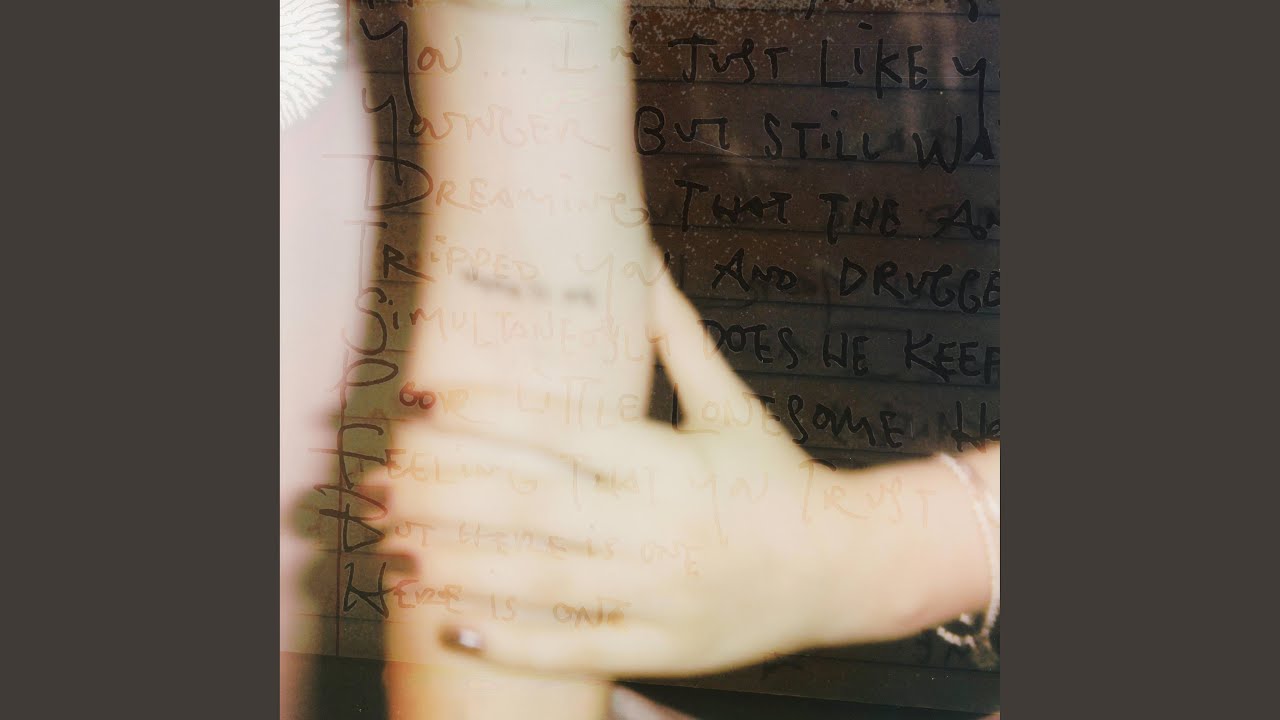 YOU... I'M JUST LIKE Y
YOUNGER BUT STILL WA
DREAMING THAT THE AN
TRIPPED YOU AND DRUGGE
SIMULTANEOUSLY DOES HE KEEP
POOR LITTLE LONESOME
FEELING THAT YOU TRUST
BUT HERE IS ONE
HERE IS ONE